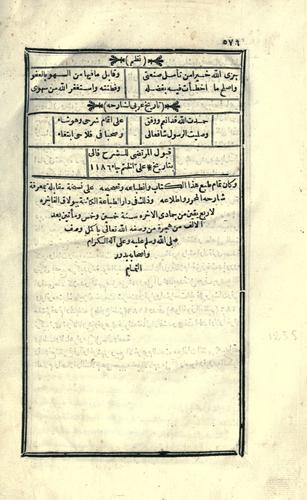 ٥٧٦
(نظم)
جزى الله خيرا من تأمل صنعتي وقابل ما فيها من السهو بالعفو
واصلح ما اخطأت فيه بفضله وفطنته واستغفر الله من سهوى
(تاريخ عربى لشارحه)
حمدت الله قدانعم ووفق على اتمام شرحى وهو شاء
وصليت الرسول شافعالى وصحبا فى فلاحى ابتغاء
قبول المرتضى للشرح قالى
بتاريخ على الختم ١١٨٦
وكان تمام طبع هذا الكتاب وانطباعه وتصحيحه على نسخة مقابلة بمعرفة
شارحه المحرر واطلاعه وذلك فى دار الطباعة الكائنة ببولاق القاهره
لاربع بقين من جمادى الاخره سنة خمسين ومأتين بعد
الالف من هجرة من وصفه الله تعالى باكمل وصف
صلى الله وسلم عليه وعلى آله الكرام
واصحابه بدور
التمام